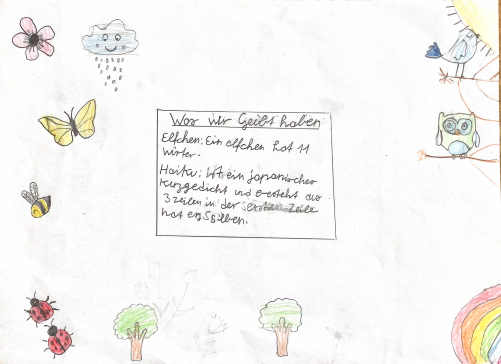 Was wir Geübt haben
Elfchen: Ein elfchen hat 11
wörter.
Haiku: Ist ein japanischer
Kurzgedicht und besteht aus
3 zeilen in der ersten Zeile
hat er 5 silben.